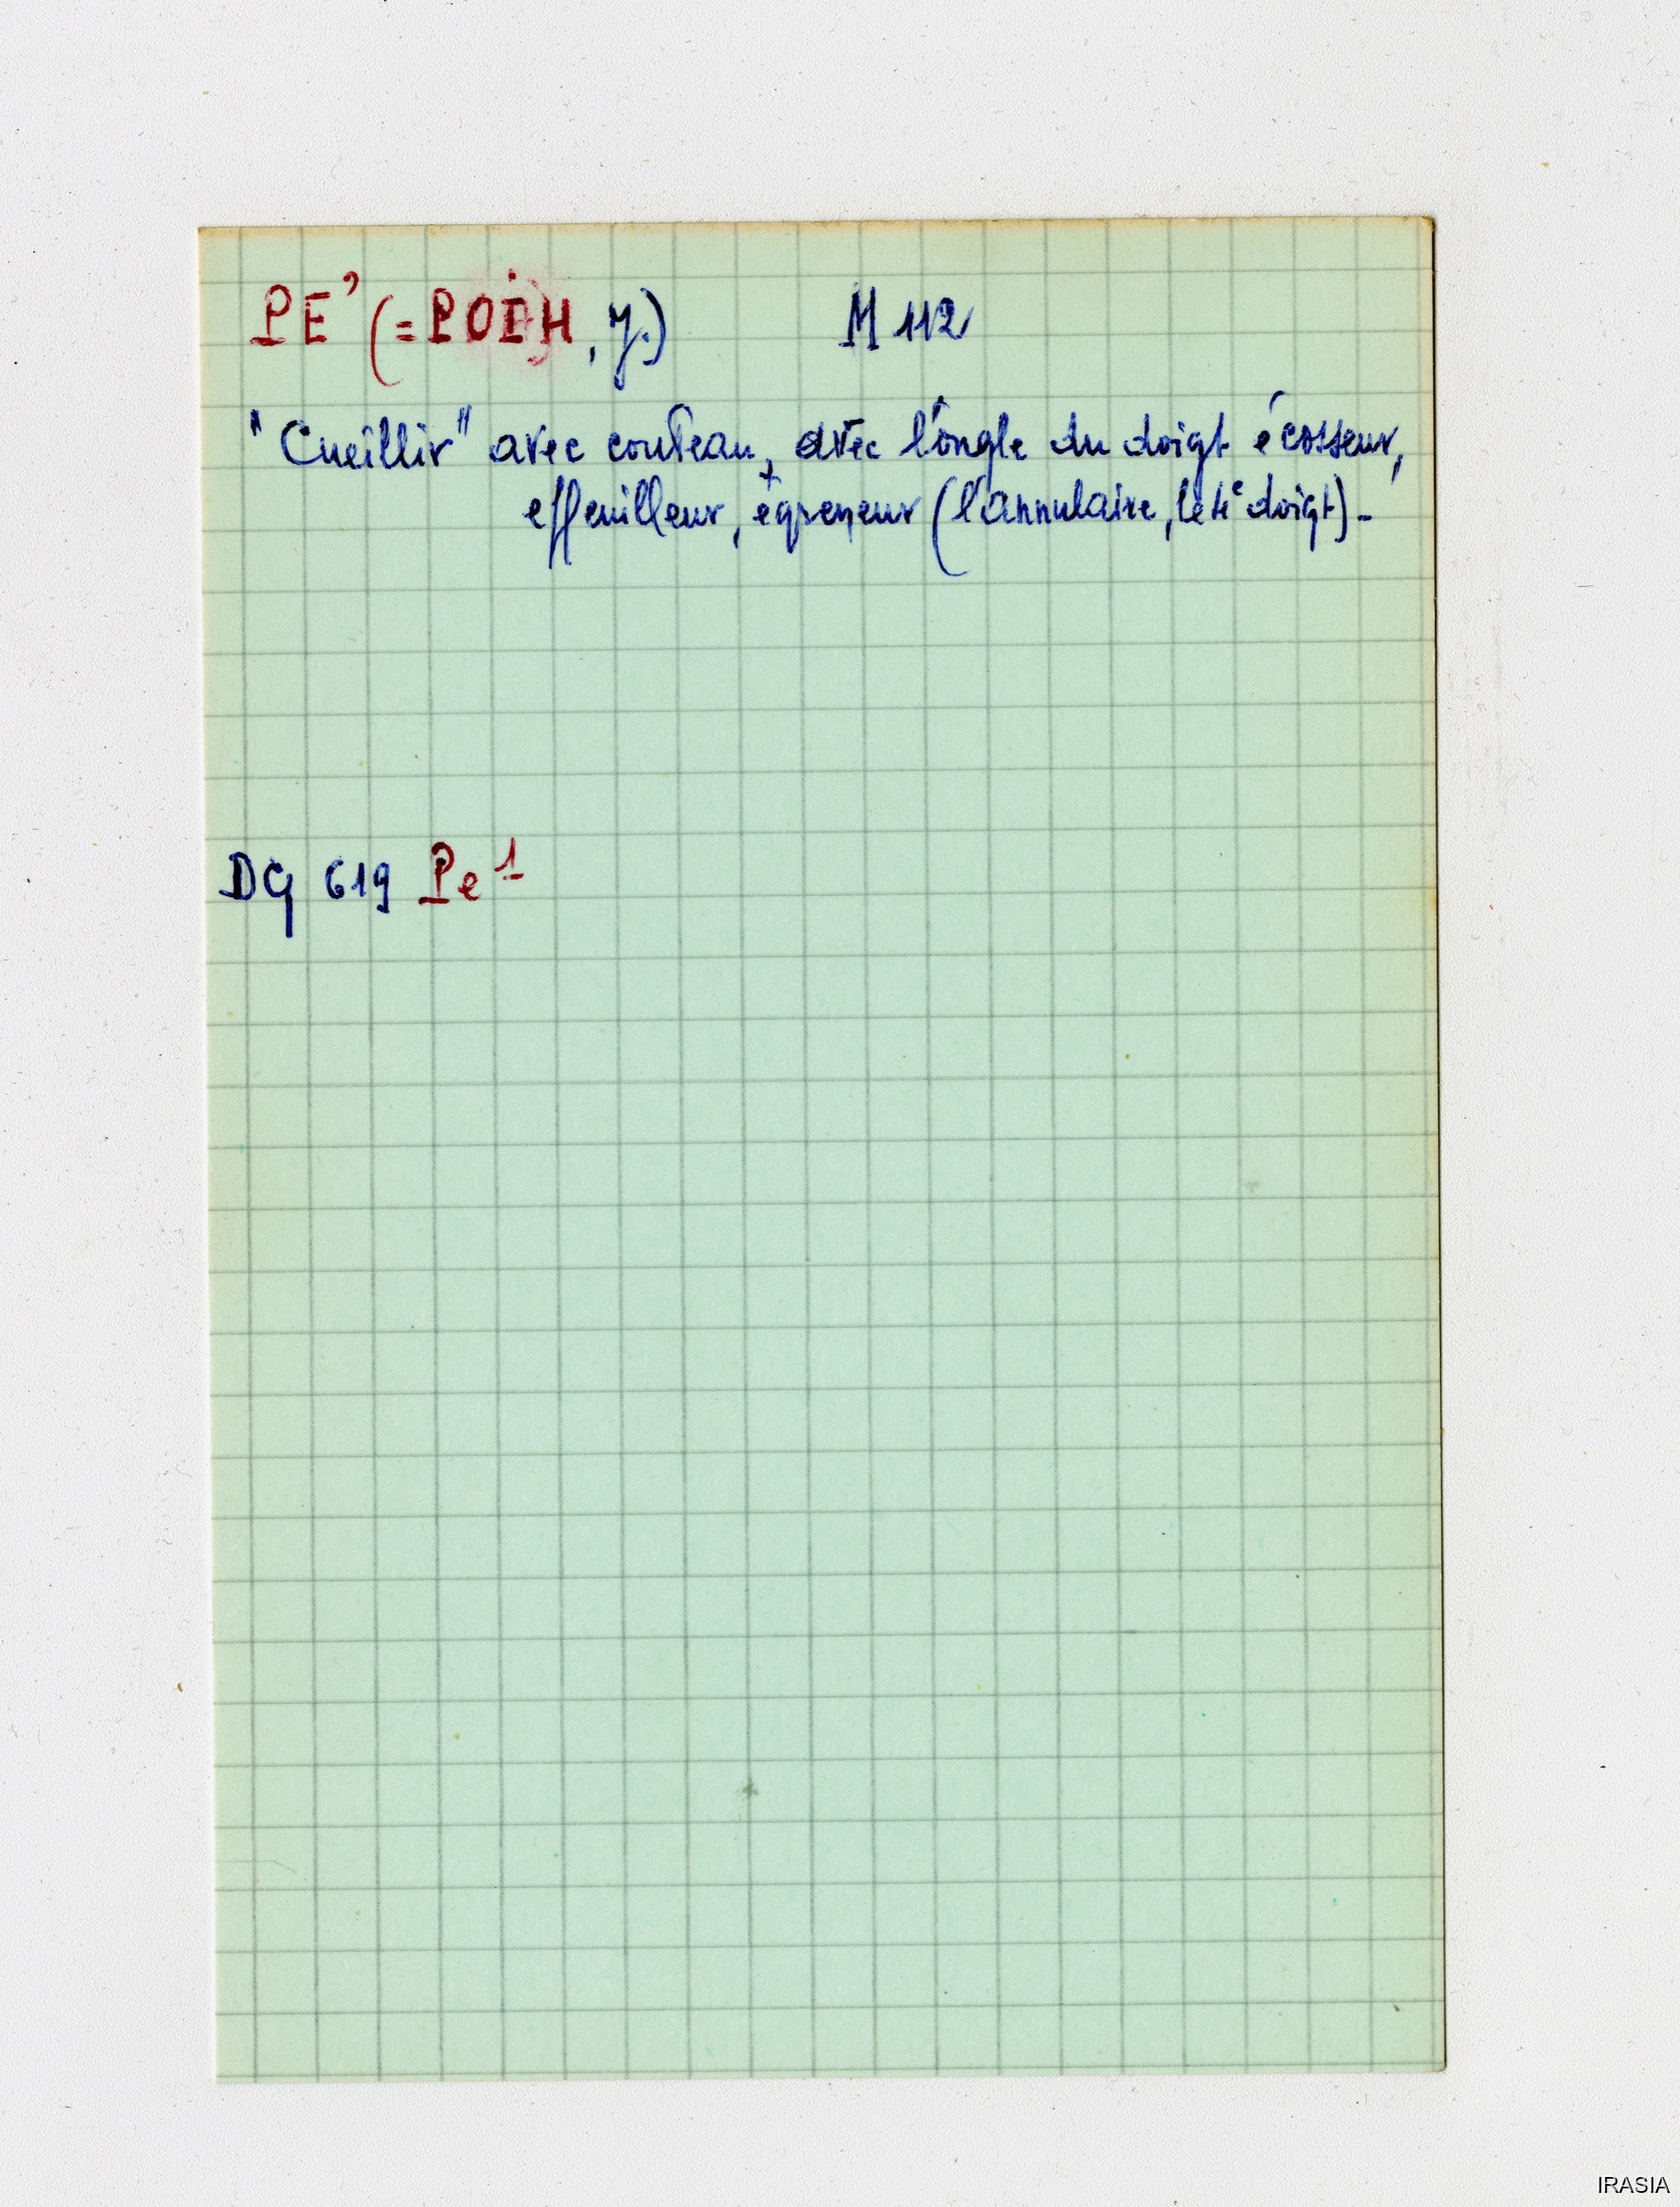 PE' (= POĖH, y.) M 112
"Cueillir" avec couteau, avec l'ongle du doigt écosseur,
effeuilleur, égreneur (l'annulaire, le 4e doigt)-
DG 619 Pe 1
IRASIA